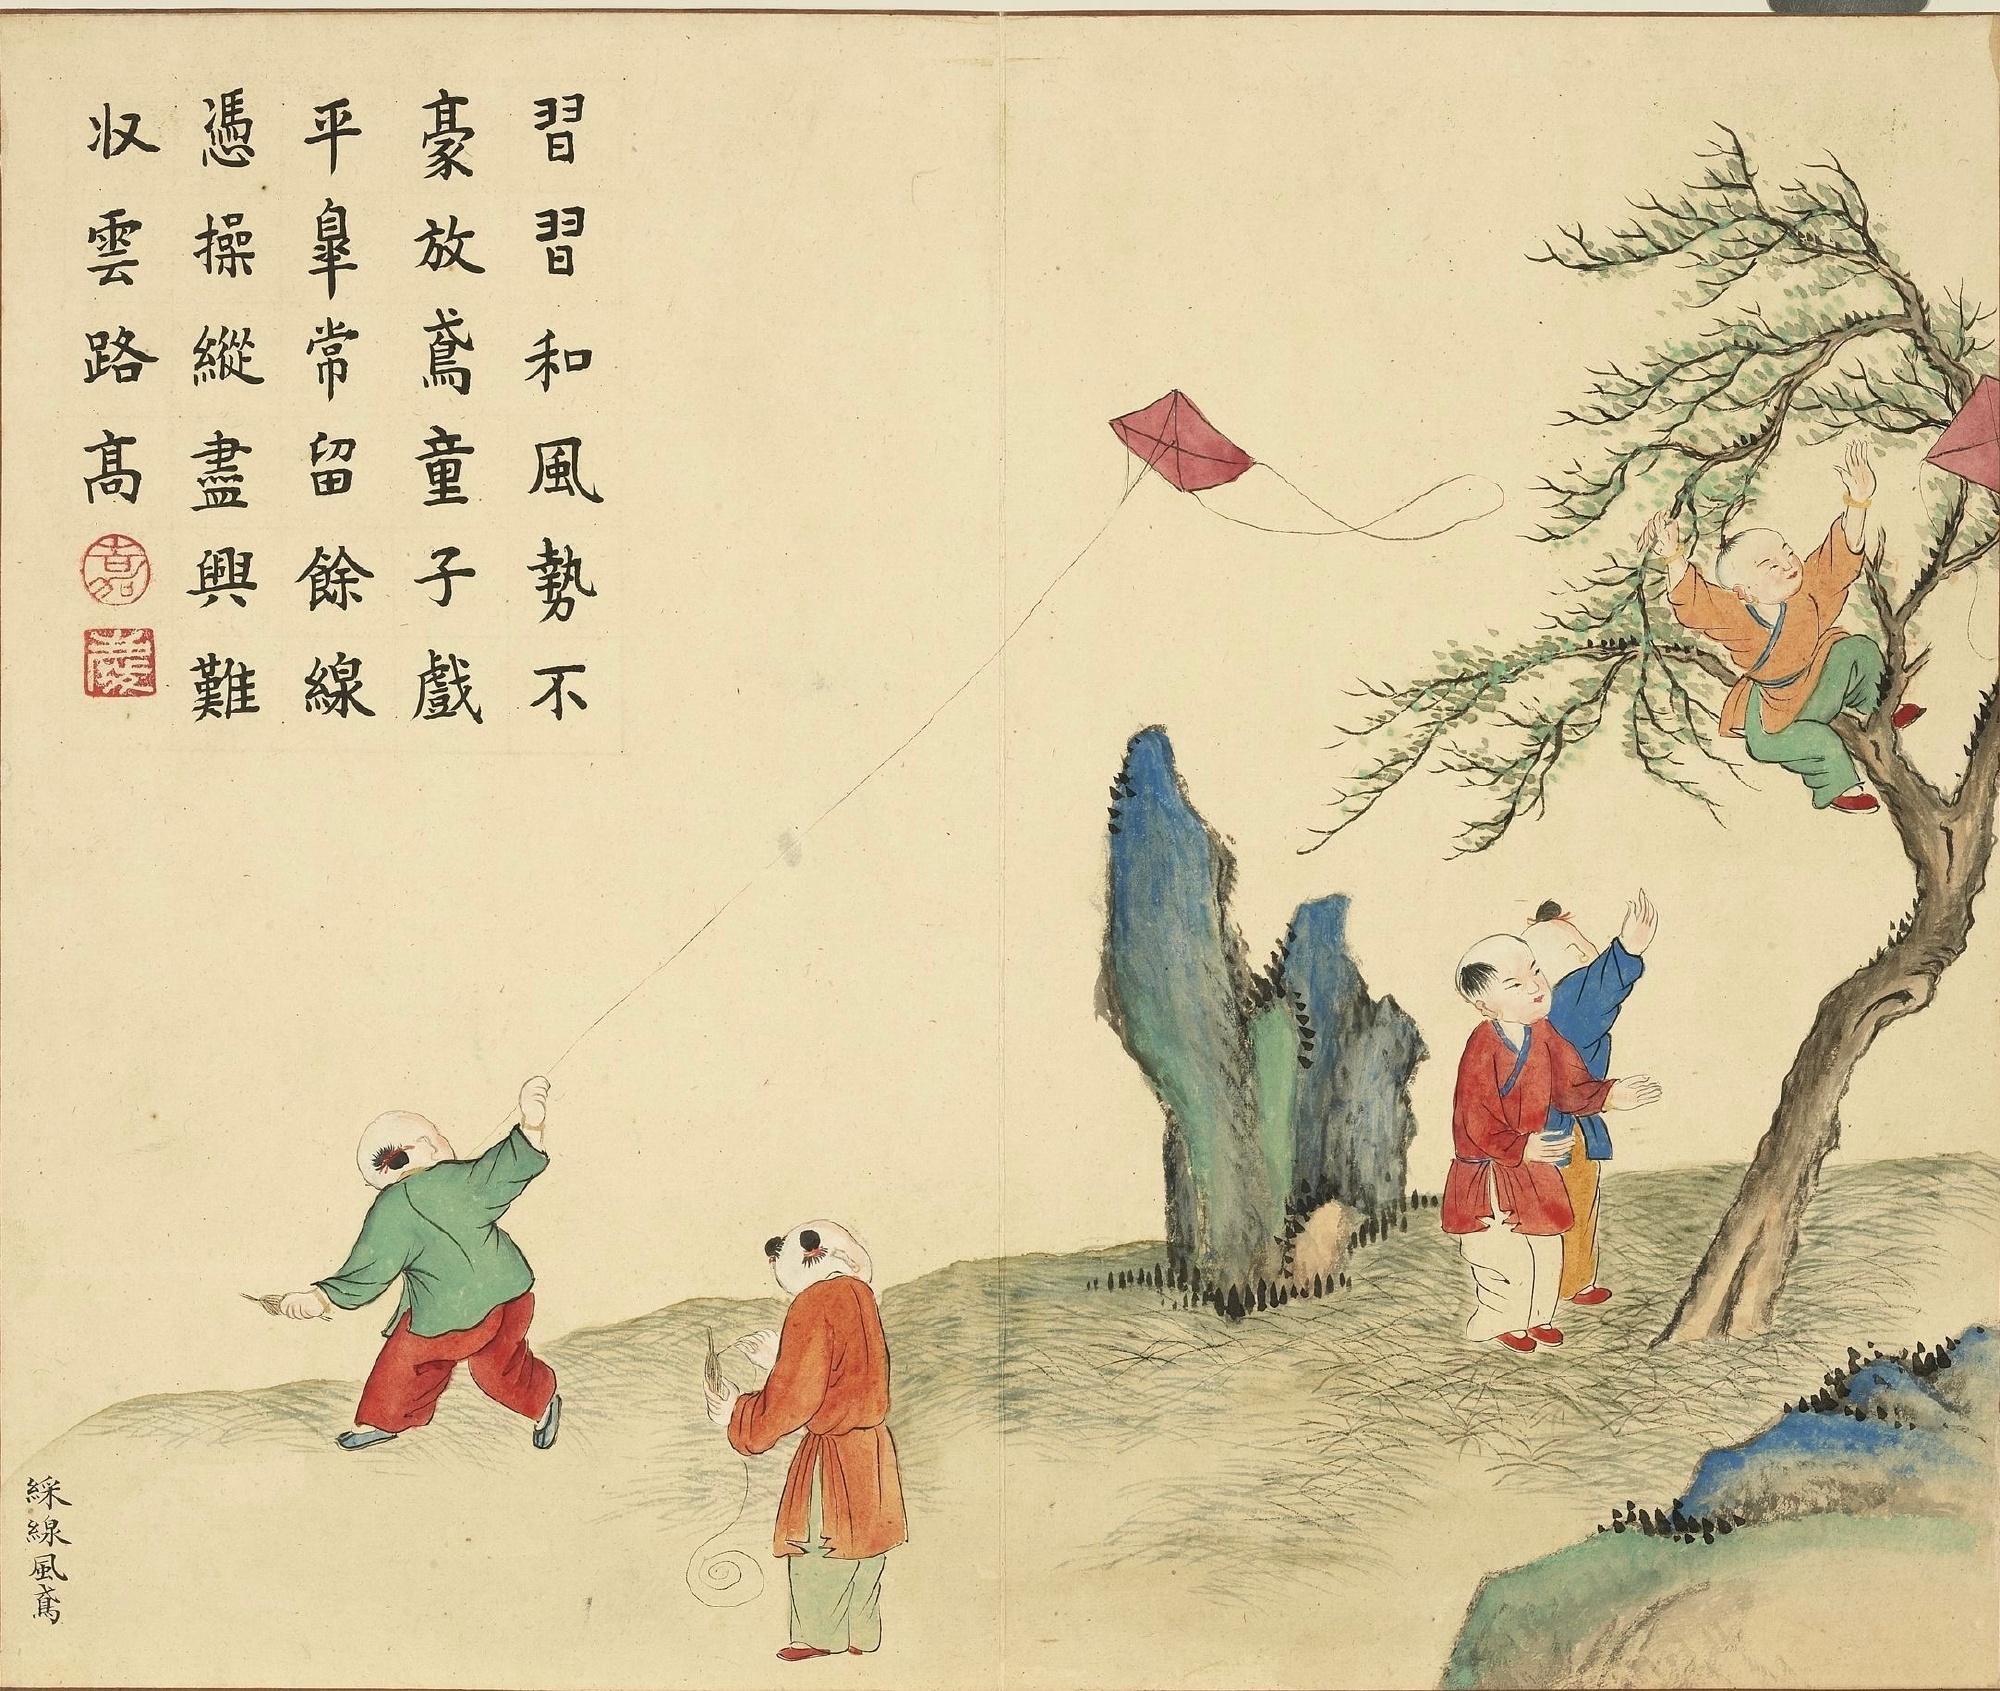 習習和風勢不
豪放鳶童子戲
平皐常留餘線
憑操縱盡興難
收雲路高
嘉
慶
綵線風鳶